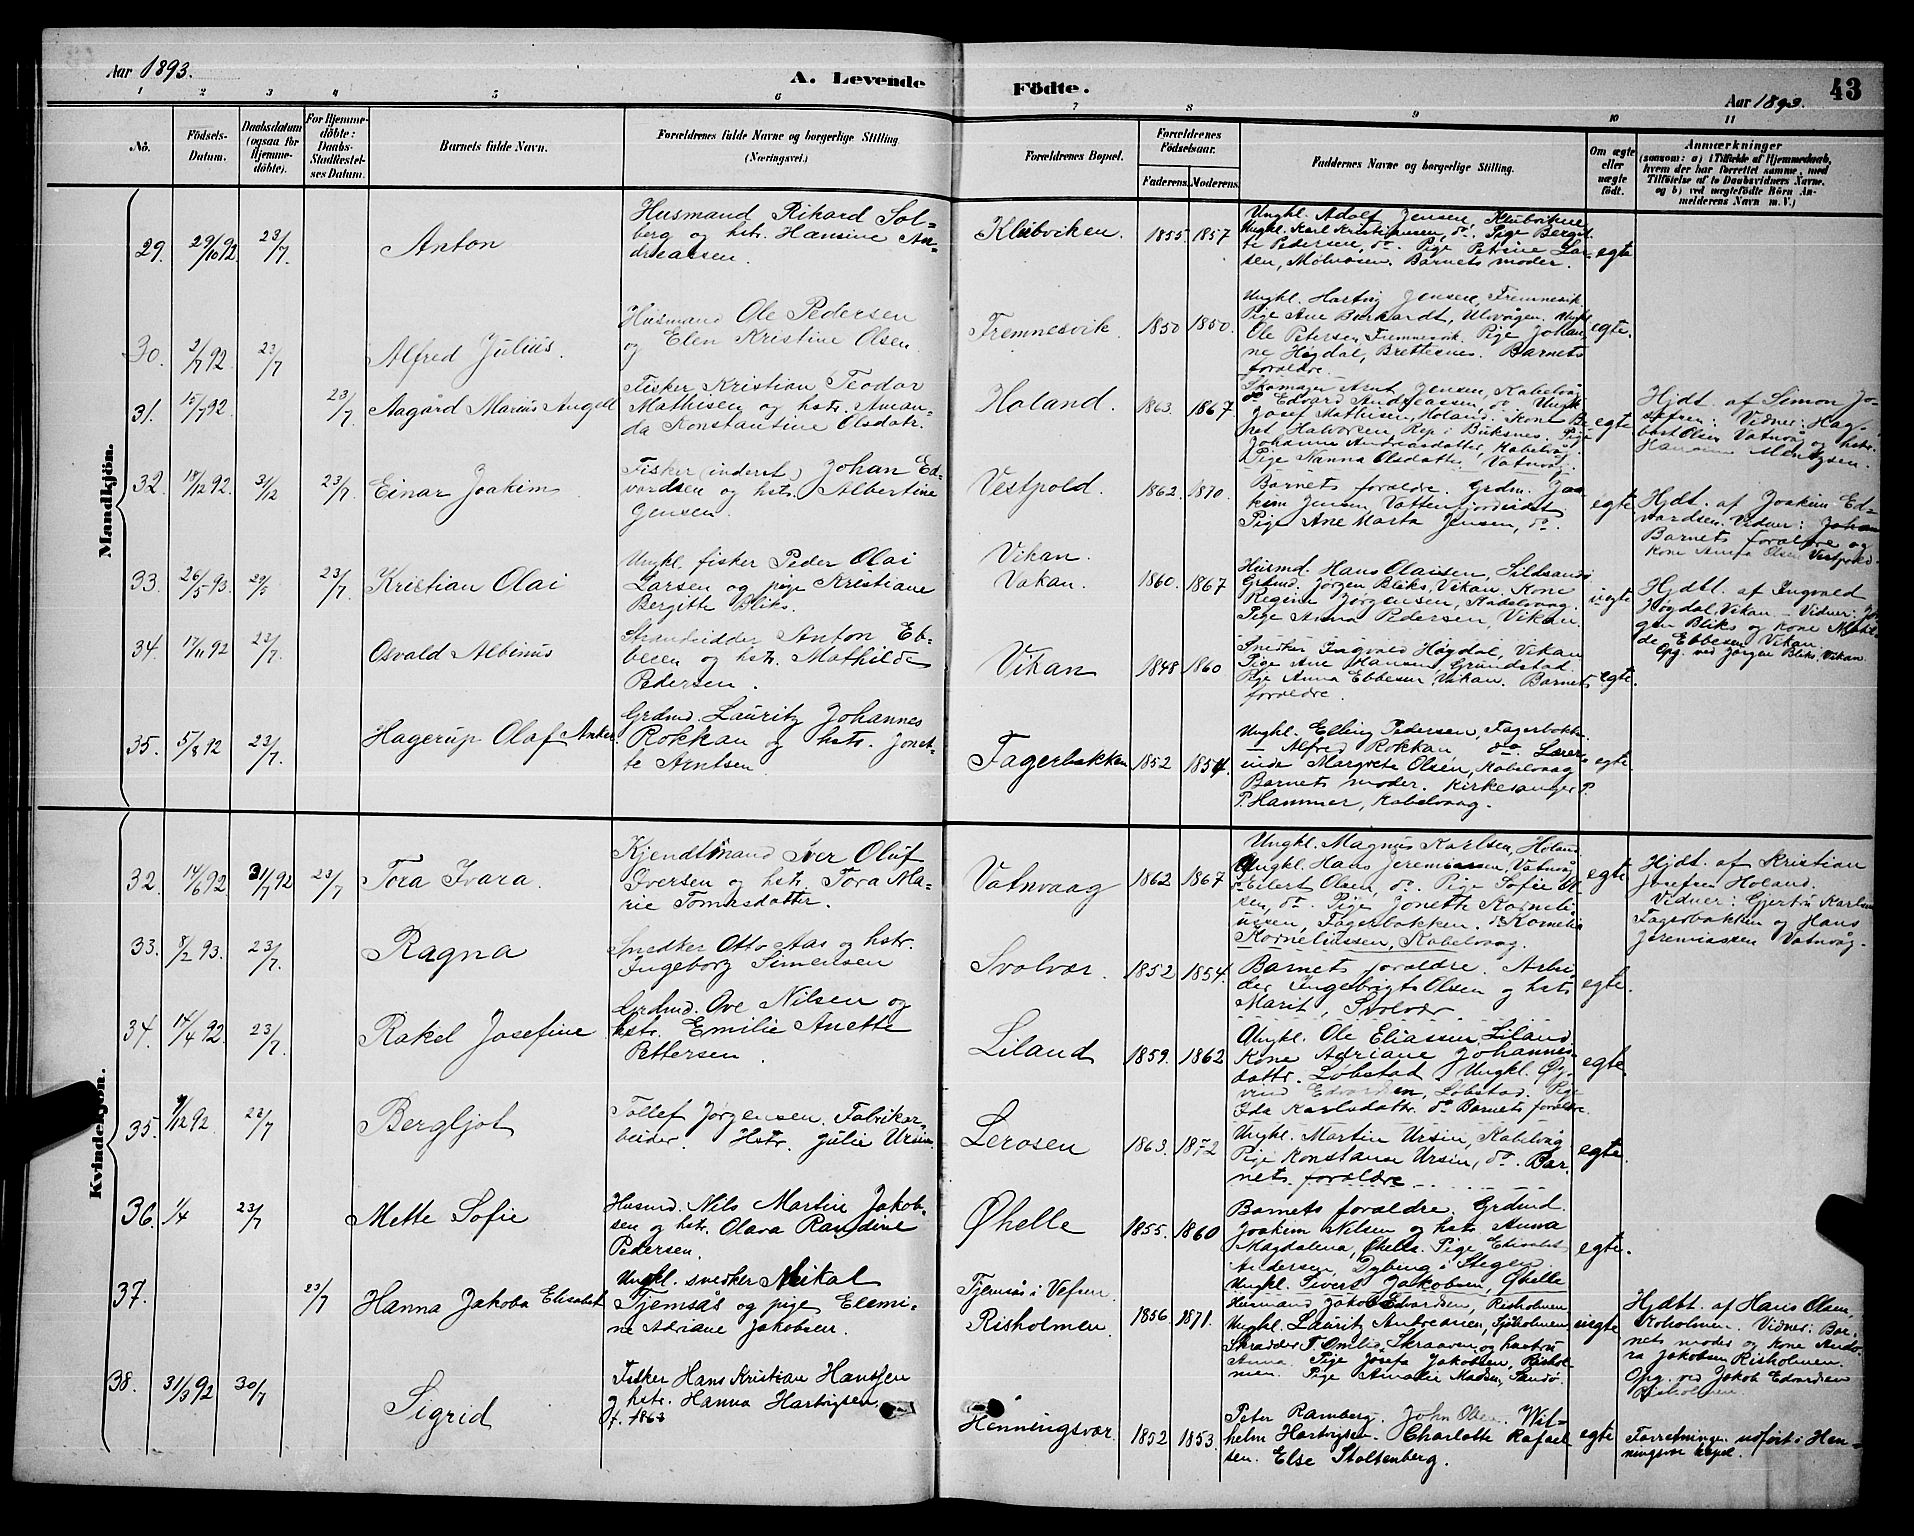 Aar 1893.
A. Levende
Födte.
43
Aar 1893.
1 2 3 4 5 6 7 8 9 10 11
No.
Födsels-
Datum.
Daabsdatum
(ogsaa for
Hjemme-
döbte).
For Hjemme-
döbte:
Daabs-
Stadfæstel-
ses Datum.
Barnets fulde Navn.
Forældrenes fulde Navne og borgerlige Stilling
(Næringsvei.)
Forældrenes Bopæl.
Forældrenes
Födselsaar.
Faderens. Moderens.
Faddernes Navne og borgerlige Stilling.
Om ægte
eller
uægte
födt.
Anmærkninger
(saasom: a) i Tilfælde af Hjemmedaab,
hvem der har forrettet samme, med
Tilföielse af to Daabsvidners Navne,
og b) ved uægtefödte Börn An-
melderens Navn m. V.)
Mandkjön.
29. 29/10 92 23/7. Anton
Husmand Rikard Sol-
berg og hstr. Hansine An-
dreassen.
Klubviken. 1855. 1857
Ungkl. Adolf Jensen, Klubviken
Ungkl. Karl Kristiansen, do. Pige Bergit-
te Pedersen, do. Pige Petrine Lar-
sen, Molnosen. Barnets moder.
egte
30. 2/7 92 23/7 Alfred Julius.
Husmand Ole Pedersen
og Elen Kristine Olsen
Fremnesvik 1850 1850.
Ungkl. Hartvig Jensen, Fremnesvik.
Pige Ane Burhardt, Ulvågen. Ungkl.
Ole Petersen, Fremnesvik. Pige Johan-
ne Høgdal, Brettesnes. Barnets
foraldre.
egte.
31. 15/7 92. 23/7 Aagård Marius Angell
Fisker Kristian Teodor
Mathisen og hstr. Aman-
da Konstantine Olsdatr.
Holand. 1863. 1867.
Skomager Arnt Jensen, Kabelvåg
do Edvard Andreassen, do. Ungk.
Josef Mathisen, Holand. Kone Be
net Halvorsen Rep i Buksnes. Pige
Johanna Andreasdatter, Kabelvåg
Pige Nanna Olsdatter, Vatnvåg.
egte
Hjdt. af Simon Jo-
sefsen: Vidner: Hag-
bart Olsen Vatnvåg og hstr.
Hansine Mentzsen.
32. 18/12 92. 31/12 23/7. Einar Joakim
Fisker (inderst) Johan Ed-
vardsen og hstr. Albertine
Jensen.
Vestpold. 1862. 1870.
Barnets foraldre. Grdm. Joa-
kim Jensen, Vatterfjordeidet
Pige Ane Marta Jensen, do.
egte
Hjdt. af Joakim Ed-
vardsen. Vidner: Johan
Barnets foraldre og
kone Anna Olsen Vestpold.
33. 26/5 93. 29/5 23/7. Kristian Olai
Ungkl. fisker Peder Olai
Larsen og pige Kristiane
Bergitte Bliks.
Vikan.
Vakan. 1860. 1867
Husmd. Hans Olaisen, Sildsand.
Grdmd. Jørgen Bliks, Vikan. Kone
Regine Jørgensen, Kabelvaag.
Pige Anna Pedersen, Vikan.
uegte
Hjdbt. af Ingvald
Høgdal, Vikan - Vidner: Jør
gen Bliks og kone Mathil
de Ebbesen Vikan.
Opg. ved Jørgen Bliks, Vikan.
34. 17/11 92 23/7. Osvald Albinus
Strandsidder Anton Eb-
besen og hstr. Mathilde
Pedersen.
Vikan 1848 1860
Snedker Ingvald Høgdal, Vikan
Pige Ane Hansen, Grundstad
Pige Anna Ebbesen, Vikan. Barnets
foraldre.
egte.
35. 5/8 92 23/7. Hagerup Olaf Anker.
Grdmd. Lauritz Johannes
Rokkan og hstr. Jonet-
te Arntsen.
Fagerbakken 1852 1854.
Ungkl. Elling Pedersen, Fagerbakke.
— Alfred Rokkan do. Lærer-
inde Margrete Olsen, Kabelvaag
Barnets moder. Kirkesanger P.
P. Hammer, Kabelvaag.
egte.
Kvindekjön.
32. 14/6 92 31/7 92 23/7 Tora Ivara.
Kjendtmand Iver Oluf
Iversen og hstr. Tora Ma-
rie Tomasdatter.
Vatnvaag 1862 1867
Ungkl. Magnus Karlsen, Holand
Ungkl. Hans Jeremiassen, Vatnvåg
do Eilert Olsen, do. Pige Sofie Ol-
sen, do. Pige Jonette Korneli-
ussen, Fagerbakken. do Kornelia
Korneliussen, Kabelvaag.
egte
Hjdt. af Kristian
Josefsen Holand.
Vidner: Gjertru Karlsen
Fagerbakken og Hans
Jeremiassen Vatnvåg.
33. 8/2 93. 23/7. Ragna
Snedker Otto Aas og hstr.
Ingeborg Simensen
Svolvær. 1852 1854.
Barnets foraldre. Arbei-
der Ingebrigt Olsen og hstr.
Marit, Svolvær.
egte.
34. 14/4 92. 23/7. Rakel Josefine
Grdmd. Ove Nilsen og
hstr. Emilie Anette
Pettersen.
Liland 1859. 1862
Ungkl. Ole Eliassen, Liland
Kone Adriane Johannes-
datter. Løbstad. Ungkl. Øj-
vind Edvardsen, Løbstad. Pige
Ida Karlsdatter do Barnets foraldre.
egte
35. 9/12 92 23/7 Bergljot
Tollef Jørgensen. Fabrikar-
beider. Hstr. Julie Ursin.
Lerosen 1863. 1872
Ungkl. Martin Ursin, Kabelvåg
Pige Konstanse Ursin, do. Bar-
nets foraldre
egte.
36. 1/4 23/7 Mette Sofie
Husmd. Nils Martin Jakob-
sen og hstr. Olava Randine
Pedersen.
Øhelle 1855. 1860
Barnets foraldre. Grdmd.
Joakim Nilsen og hstr. Anna
Magdalena, Øhelle. Pige Elisabet
Andersen, Dyping i Stegen
Ungkl. Sivert Jakobsen, Øhelle
egte.
37. 23/7 Hanna Jakoba Elisabet
Ungkl. snedker Mikal
Tjemsås og pige Elemi-
ne Adriane Jakobsen.
Tjemsås i Vefsen.
Risholmen. 1856 1871.
Husmand Jakob Edvardsen, Risholmen
Ungkl. Lauritz Antonsen, Sjöholmen
Skradder T. Omlid, Skraaven og hustru
Anna. Pige Josefa Jakobsen, Rishol-
men. Pige Amalie Madsen, Sandö.
uegte
Hjdbt. af Hans Olsen,
Koholmen. Vidner: Bar-
nets moder og kone Ando-
ra Jakobsen Risholmen.
Opg. ved Jakob Edvardsen
Risholmen.
38. 31/3 92 30/7 Sigrid
Fisker Hans Kristian Hanssen
og hstr. Hanna Hartvigsen.
f. 1863
Henningsvær. 1852 1853.
Peter Ramberg. John Olsen. Wil-
helm Hartvigsen. Charlotte Rafael-
sen. Else Stoltenberg.
egte
Forretningen udført i Hen-
ningsvær kapel.